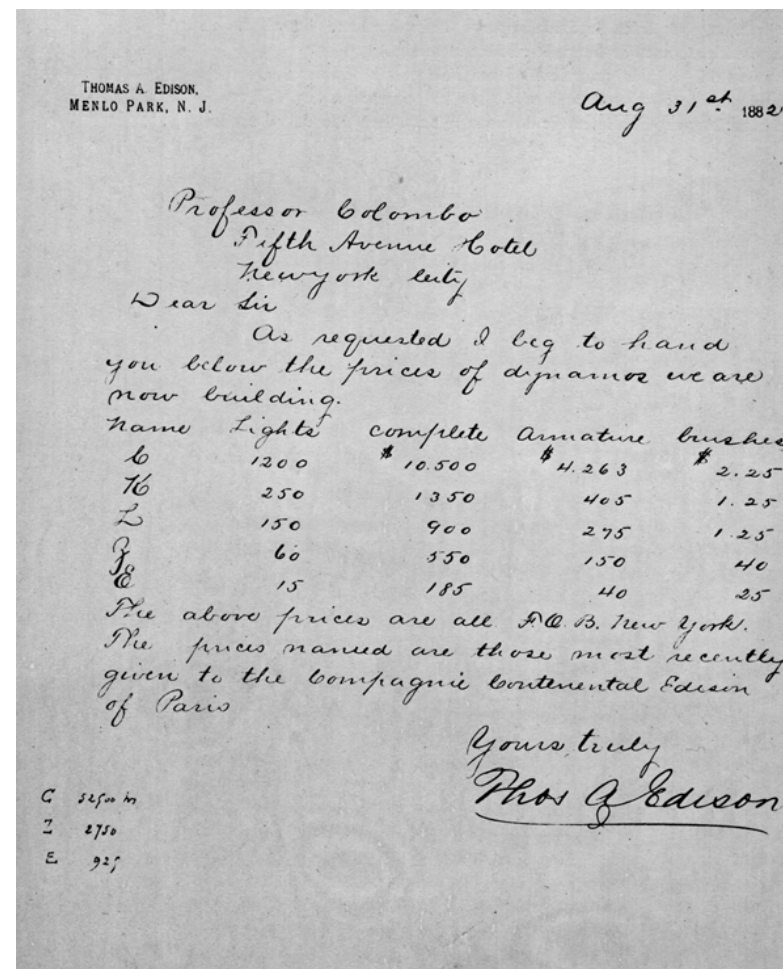 THOMAS A. EDISON,
MENLO PARK, N. J.
Aug 31st 1882
Professor Colombo
Fifth Avenue Hotel
Newyork City
Dear Sir
As requested I beg to hand
you below the prices of dynamos we are
now building.
Name Lights complete Armature brushes
C 1200 $ 10.500 $ 4.263 $ 2.25
K 250 1350 405 1.25
L 150 900 275 1.25
Z 60 550 150 40
E 15 185 40 25
The above prices are all F.O.B. New York.
The prices named are those most recently
given to the Compagnie Continental Edison
of Paris
Yours truly
Thos A Edison
C 52500
Z 2750
E 925